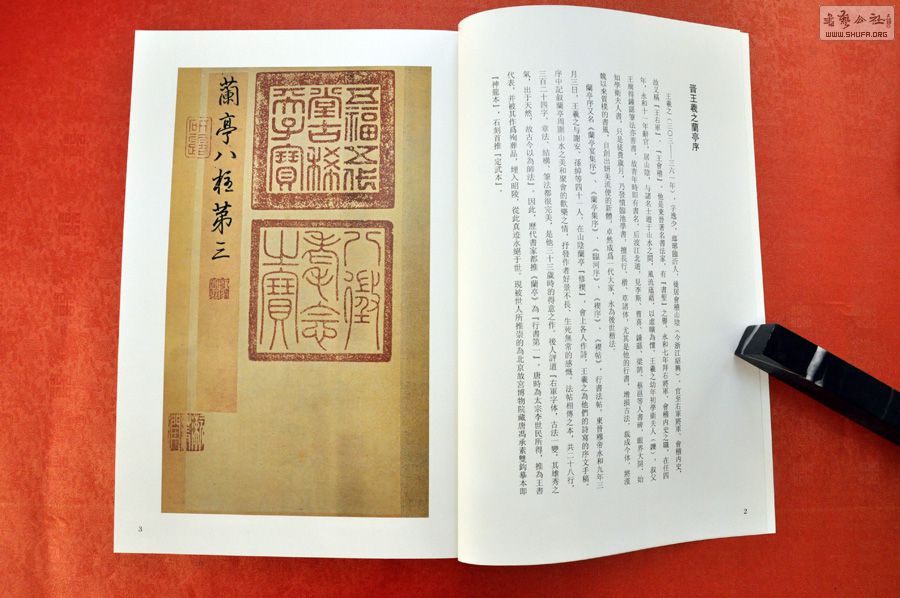 晉王羲之蘭亭序
王羲之（三〇三——三六一年），字逸少，瑯琊臨沂人，徙居會稽山陰（今浙江紹興），官至右軍將軍，會稽內史，
故又稱『王右軍』、『王會稽』。他是東晉著名書法家，有『書聖』之譽。永和七年拜右將軍、會稽內史之職，在任四
年，永和十一年辭官，居山陰，與諸名士遊于山水之間，風流蘊藉，以虛曠為懷。王羲之幼年初學衛夫人（鑠），叔父
王廙得鍾繇筆法亦善書，故青年時即有書名，后渡江北遊，見李斯、曹喜、鍾繇、梁鵠、蔡邕等人書碑，眼界大開，始
知學衛夫人書，只是徒費歲月，乃發憤臨池學書，擅長行、楷、草諸體，尤其是他的行書，增損古法，裁成今体，將漢
魏以來質樸的書風，自創出妍美流便的新體，卓然成爲一代大家，永為後世楷法。
蘭亭序又名《蘭亭宴集序》、《蘭亭集序》、《臨河序》、《禊序》、《禊帖》，行書法帖。東晉穆帝永和九年三
月三日，王羲之與謝安、孫綽等四十一人，在山陰蘭亭『修禊』，會上各人作詩，王羲之為他們的詩寫的序文手稿。
序中記敘蘭亭周圍山水之美和聚會的歡樂之情，抒發作者好景不長、生死無常的感慨。法帖相傳之本，共二十八行，
三百二十四字，章法、結構、筆法都很完美，是他三十三歲時的得意之作。後人評道『右軍字体，古法一變，其雄秀之
氣，出于天然，故古今以為師法』。因此，歷代書家都推《蘭亭》為『行書第一』。唐時為太宗李世民所得，推為王書
代表，并被其作爲殉葬品，埋入昭陵，從此真迹永絕于世。現被世人所推崇的為北京故宮博物院藏唐馮承素雙鉤摹本即
『神龍本』，石刻首推『定武本』。
2
五福五代
堂古稀
天子寶
八徵
耄念
之寶
蘭亭八柱第三
3
WWW.SHUFA.ORG